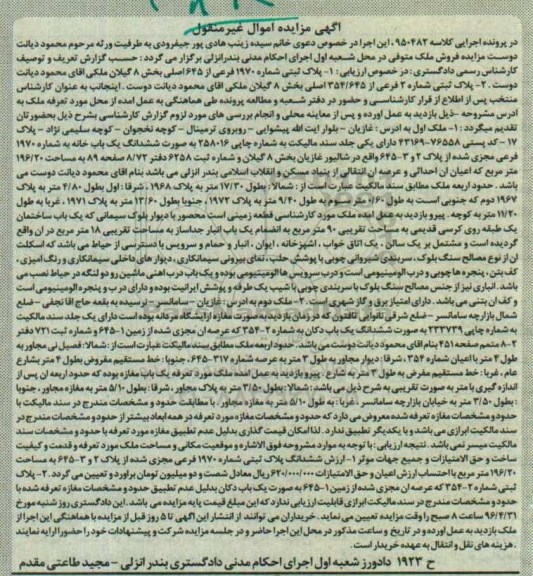 آگهی مزایده اموال غیرمنقول
در پرونده اجرایی کلاسه ۹۵۰۴۸۲، این اجرا در خصوص دعوی خانم سیده زینب هادی پور جیفرودی به طرفیت ورثه مرحوم محمود دیانت
دوست مزایده فروش ملک متوفی در محل شعبه اول اجرای احکام مدنی بندرانزلی برگزار می گردد: حسب گزارش تعریف و توصیف
کارشناس رسمی دادگستری: در خصوص ارزیابی: ۱- پلاک ثبتی شماره ۱۹۷۰ فرعی از ۶۴۵ اصلی بخش ۸ گیلان ملکی اقای محمود دیانت
دوست. ۲- پلاک ثبتی شماره ۲ فرعی از ۳۵۴/۶۴۵ اصلی بخش ۸ گیلان ملکی اقای محمود دیانت دوست. اینجانب به عنوان کارشناس
منتخب پس از اطلاع از قرار کارشناسی و حضور در دفتر شعبه و مطالعه پرونده طی هماهنگی به عمل امده از محل مورد تعرفه ملک به
ادرس مشروحه ذیل بازدید به عمل اورده و پس از معاینه محلی و انجام بررسی های مورد لزوم گزارش کارشناسی بشرح ذیل بحضورتان
تقدیم میگردد: ۱- ملک اول به ادرس: غازیان - بلوار ایت الله پیشوایی - روبروی ترمینال - کوچه نخجوان - کوچه سلیمی نژاد - پلاک
۱۷ - کد پستی ۷۶۵۵۸-۴۳۱۶۹ دارای یکی جلد سند مالکیت به شماره چاپی ۲۵۸۰۱۶ به صورت ششدانگ یک باب خانه به شماره ۱۹۷۰
فرعی مجزی شده از پلاک ۲ و ۳-۶۴۵ واقع در شالیور غازیان بخش ۸ گیلان و شماره ثبت ۶۲۵۸ دفتر ۸/۷۲ صفحه ۸۹ به مساحت ۱۹۶/۲۰
متر مربع که اعیان ان احداثی و عرصه ان انتقالی از بنیاد مسکن و انقلاب اسلامی بندر انزلی می باشد بنام اقای محمود دیانت دوست می
باشد. حدود اربعه ملک مطابق سند مالکیت عبارت است از: شمالا: بطول ۱۷/۳۰ متر به پلاک ۱۹۶۸، شرقا: اول بطول ۴/۸۰ متر به پلاک
۱۹۶۷ دوم که جنوبی است به طول ۰/۶۰ متر سوم به طول ۹/۴۰ متر به پلاک ۱۹۷۲، جنوبا: بطول ۱۳/۶۰ متر به پلاک ۱۹۷۱، غربا به طول
۱۱/۲۰ متر به کوچه. پیرو بازدید به عمل امده ملک مورد کارشناسی قطعه زمینی است محصور با دیوار بلوک سیمانی که یک باب ساختمان
یک طبقه روی کرسی قدیمی به مساحت تقریبی ۹۰ متر مربع به انضمام یک باب انبار جداساز به مساحت تقریبی ۱۸ متر مربع در ان واقع
گردیده است و مشتمل بر یک سالن، یک اتاق خواب، اشپزخانه، ایوان، انبار و حمام و سرویس با دسترسی از حیاط می باشد که اسکلت
ان از نوع مصالح سنگ بلوک، سربندی شیروانی چوبی با پوشش حلب، نمای بیرونی سیمانکاری، دیوار های داخلی سیمانکاری و رنگ امیزی،
کف بتن، پنجره ها چوبی و درب الومینیومی است و درب سرویس ها الومینیومی بوده و یک باب درب اهنی ماشین رو دو لنگه در حیاط نصب می
باشد. انباری نیز از جنس مصالح سنگ بلوک با سربندی چوبی با شیب یک طرفه و پوشش ایرانیت بوده و دارای درب و پنجره الومینیومی است
و کف ان بتنی می باشد. دارای امتیاز برق و گاز شهری است. ۲- ملک دوم به ادرس: غازیان - سامانسر - نرسیده به بقعه حاج اقا نجفی - ضلع
شمال بازارچه سامانسر - ضلع شرقی نانوایی تافتون که در زمان بازدید به صورت مغازه ارایشگاه مردانه بوده است دارای یک جلد سند مالکیت
به شماره چاپی ۲۳۳۷۳۹ به صورت ششدانگ یک باب دکان به شماره ۲-۳۵۴ که عرصه ان مجزی شده از زمین ۱-۶۴۵ و شماره ثبت ۷۲۱ دفتر
۲-۸ متمم صفحه ۴۵۱ بنام اقای محمود دیانت دوست می باشد. حدود اربعه ملک مطابق سند مالکیت عبارت است از: شمالا: فصیل لی مجاور به
طول ۴ متر با اعیان شماره ۳۵۴، شرقا: دیوار مجاور به طول ۳ متر به عرصه شماره ۳۱۷-۶۴۵، جنوبا: خط مستقیم مفروض بطول ۴ متر بشارع
عام، غربا: خط مستقیم مفرض به طول ۳ متر به شارع. پیرو بازدید به عمل امده ملک مورد تعرفه یک باب مغازه بوده که حدود اربعه ان پس از
اندازه گیری با متر به صورت تقریبی به شرح ذیل می باشد: شمالا: بطول ۳/۵۰ متر به پلاک مجاور، شرقا: بطول ۵/۱۰ متر به مغازه مجاور، جنوبا
: بطول ۳/۵۰ متر به خیابان بازارچه سامانسر، غربا: به طول ۵/۱۰ متر به مغازه مجاور. با مطابقت حدود و مشخصات مندرج در سند مالکیت با
حدود و مشخصات مغازه تعرفه شده معروض می دارد که حدود و مشخصات مغازه مورد تعرفه در همه ابعاد بیشتر از حدود و مشخصات مندرج در
سند مالکیت ابرازی می باشد و با یکدیگر تطبیق ندارد. لذا امکان قیمت گذاری بدلیل عدم تطبیق مغازه مورد تعرفه با حدود و مشخصات سند
مالکیت میسر نمی باشد. نتیجه ارزیابی: با توجه به موارد مشروحه فوق الاشاره و موقعیت مکانی و مساحت ملک مورد تعرفه و قدمت و کیفیت
ساخت و حق الامتیازات و جمیع جهات موثر ۱- ارزش ششدانگ پلاک ثبتی شماره ۱۹۷۰ فرعی مجزی شده از پلاک ۲ و ۳-۶۴۵ به مساحت
۱۹۶/۲۰ متر مربع با احتساب ارزش اعیان و حق الامتیازات ۶۲۰/۰۰۰/۰۰۰ ریال معادل شصت و دو میلیون تومان براورد و تعیین می گردد. ۲- پلاک
ثبتی شماره ۲-۳۵۴ که عرصه ان مجزی شده از زمین ۱-۶۴۵ به صورت یک باب دکان بدلیل عدم تطبیق حدود و مشخصات مغازه تعرفه شده با
حدود و مشخصات مندرج در سند مالکیت ابرازی قابلیت ارزیابی ندارد که این مبلغ قیمت پایه مزایده می باشد. این دادگستری روز شنبه مورخ
۹۶/۴/۳۱ ساعت ۸ صبح را وقت مزایده تعیین می نماید. خریداران می توانند از انتشار این اگهی تا ۵ روز قبل از مزایده با هماهنگی این اجرا از
ملک بازدید به عمل اورده و در تاریخ و ساعت مذکور در محل این اجرا حاضر و در جلسه مزایده شرکت و پیشنهادات خود را حضورا ارایه نمایند
. هزینه های نقل و انتقال به عهده خریدار است.
ح ۱۹۲۳ دادورز شعبه اول اجرای احکام مدنی دادگستری بندر انزلی - مجید طاعتی مقدم